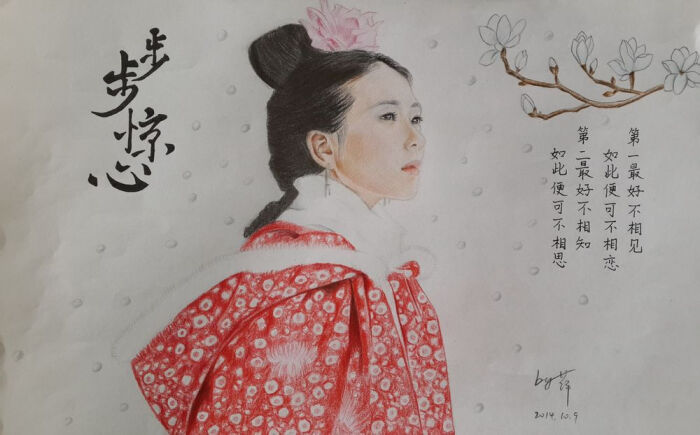 步步惊心
第一最好不相见
如此便可不相恋
第二最好不相知
如此便可不相思
by 萍
2014.10.9